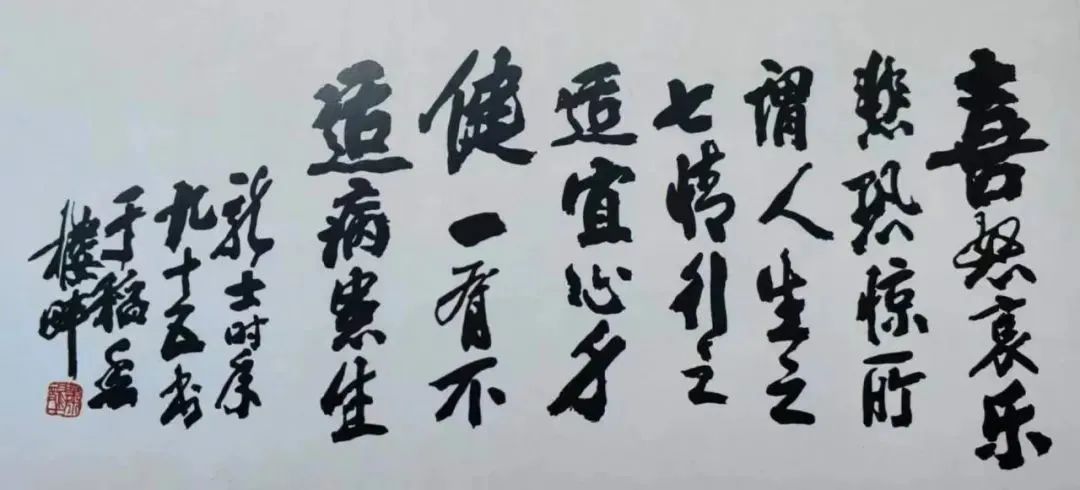 喜怒哀乐
悲恐惊所
谓人生之
七情引之
适宜心身
健一有不
适病患生
龙士时年
九十五书
于稻香
楼畔